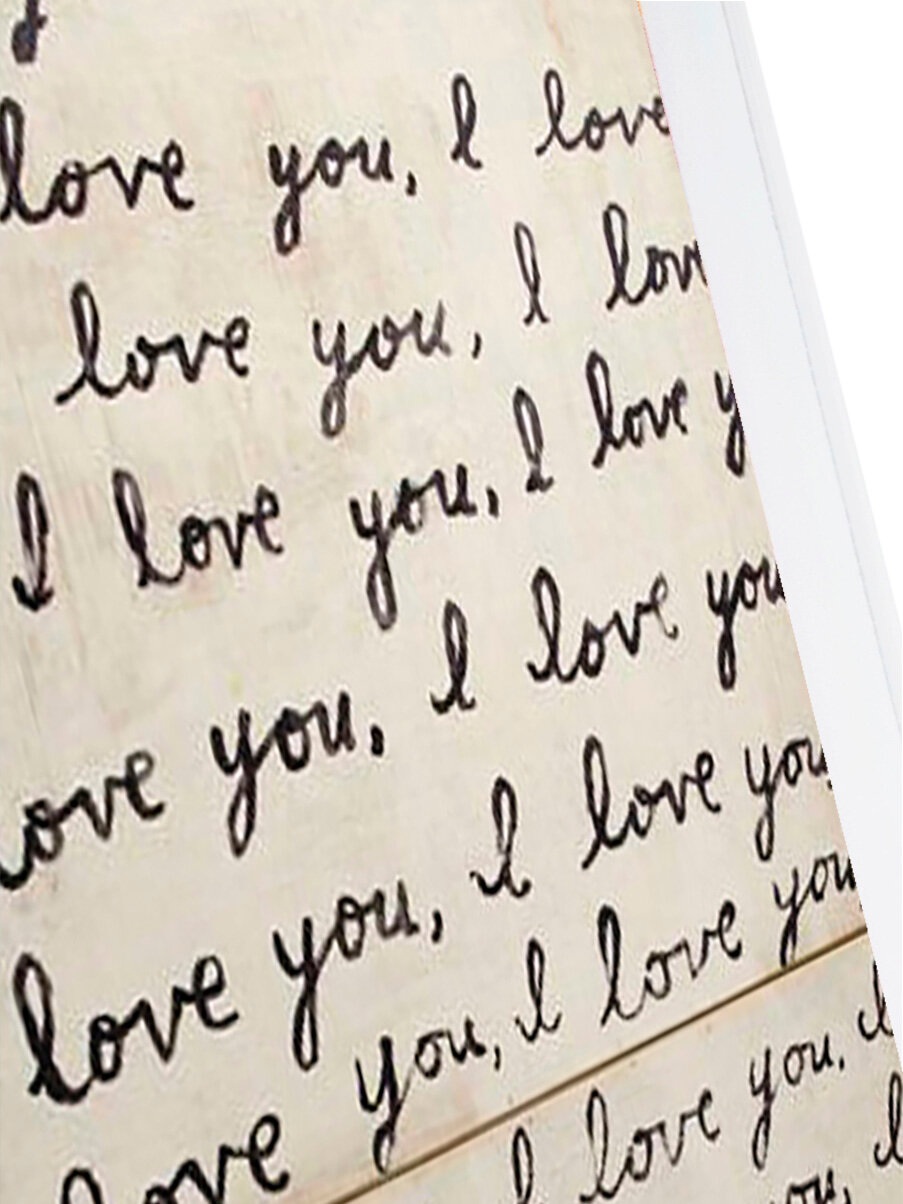 love you, I love
love you, I lov
I love you, I love y
ove you, I love you
love you, I love you
love you, I love you
I love you, I
you, I